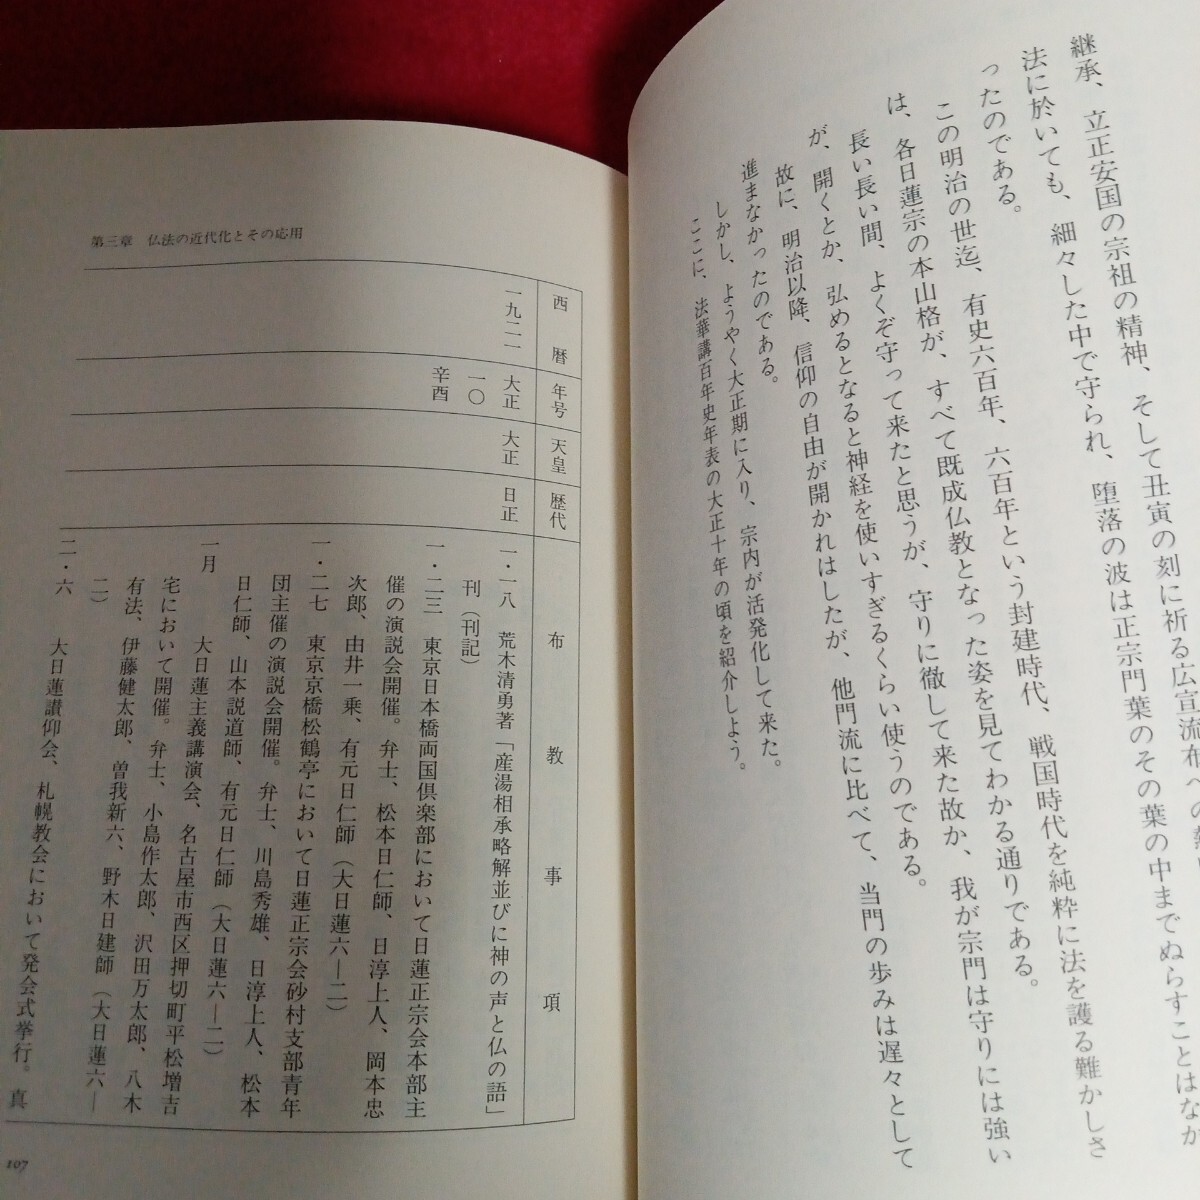 継承、立正安国の宗祖の精神、そして丑寅の刻に祈る広宣流布への
法に於いても、細々した中で守られ、堕落の波は正宗門葉のその葉の中までぬらすことはなか
ったのである。
この明治の世迄、有史六百年、六百年という封建時代、戦国時代を純粋に法を護る難かしさ
は、各日蓮宗の本山格が、すべて既成仏教となった姿を見てわかる通りである。
長い長い間、よくぞ守って来たと思うが、守りに徹して来た故か、我が宗門は守りには強い
が、開くとか、弘めるとなると神経を使いすぎるくらい使うのである。
故に、明治以降、信仰の自由が開かれはしたが、他門流に比べて、当門の歩みは遅々として
進まなかったのである。
しかし、ようやく大正期に入り、宗内が活発化して来た。
ここに、法華講百年史年表の大正十年の頃を紹介しよう。
第三章 仏法の近代化とその応用
西暦 年号 天皇 歴代 布教事項
一九二一 大正 大正 日正
一〇
辛酉
一・一八 荒木清勇著「産湯相承略解並びに神の声と仏の語」
刊（刊記）
一・二三 東京日本橋両国倶楽部において日蓮正宗会本部主
催の演説会開催。弁士、松本日仁師、日淳上人、岡本忠
次郎、由井一乗、有元日仁師（大日蓮六―二）
一・二七 東京京橋松鶴亭において日蓮正宗会砂村支部青年
団主催の演説会開催。弁士、川島秀雄、日淳上人、松本
日仁師、山本説道師、有元日仁師（大日蓮六―二）
一月 大日蓮主義講演会、名古屋市西区押切町平松増吉
宅において開催。弁士、小島作太郎、沢田万太郎、八木
有法、伊藤健太郎、曽我新六、野木日建師（大日蓮六―
二）
二・六 大日蓮讃仰会、札幌教会において発会式挙行。真
107